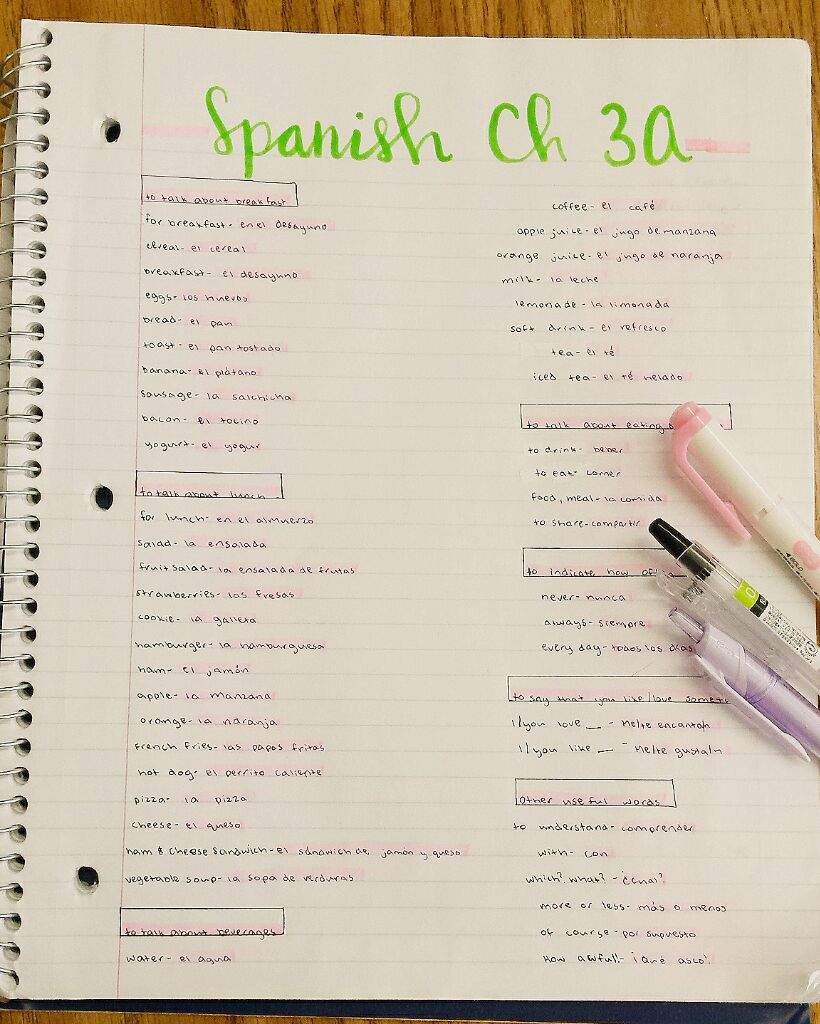 Spanish Ch 3A
to talk about breakfast
for breakfast- en el desayuno
cereal- el cereal
breakfast- el desayuno
eggs- los huevos
bread- el pan
toast- el pan tostado
banana- el plátano
sausage- la salchicha
bacon- el tocino
yogurt- el yogur
to talk about lunch
for lunch- en el almuerzo
salad- la ensalada
fruit salad- la ensalada de frutas
strawberries- las fresas
cookie- la galleta
hamburger- la hamburguesa
ham- el jamón
apple- la manzana
orange- la naranja
french fries- las papas fritas
hot dog- el perrito caliente
pizza- la pizza
cheese- el queso
ham & cheese sandwich- el sándwich de jamón y queso
vegetable soup- la sopa de verduras
to talk about beverages
water- el agua
coffee- el café
apple juice- el jugo de manzana
orange juice- el jugo de naranja
milk- la leche
lemonade- la limonada
soft drink- el refresco
tea- el té
iced tea- el té helado
to talk about eating
to drink- beber
to eat- comer
food, meal- la comida
to share- compartir
to indicate how
never- nunca
always- siempre
every day- todos los días
to say that you like/love
I/you love __ - Me/te encanta/n
I/you like __ - Me/te gusta/n
Other useful words
to understand- comprender
with- con
which? what? - ¿cual?
more or less- más o menos
of course- por supuesto
How awful!- ¡Qué asco!